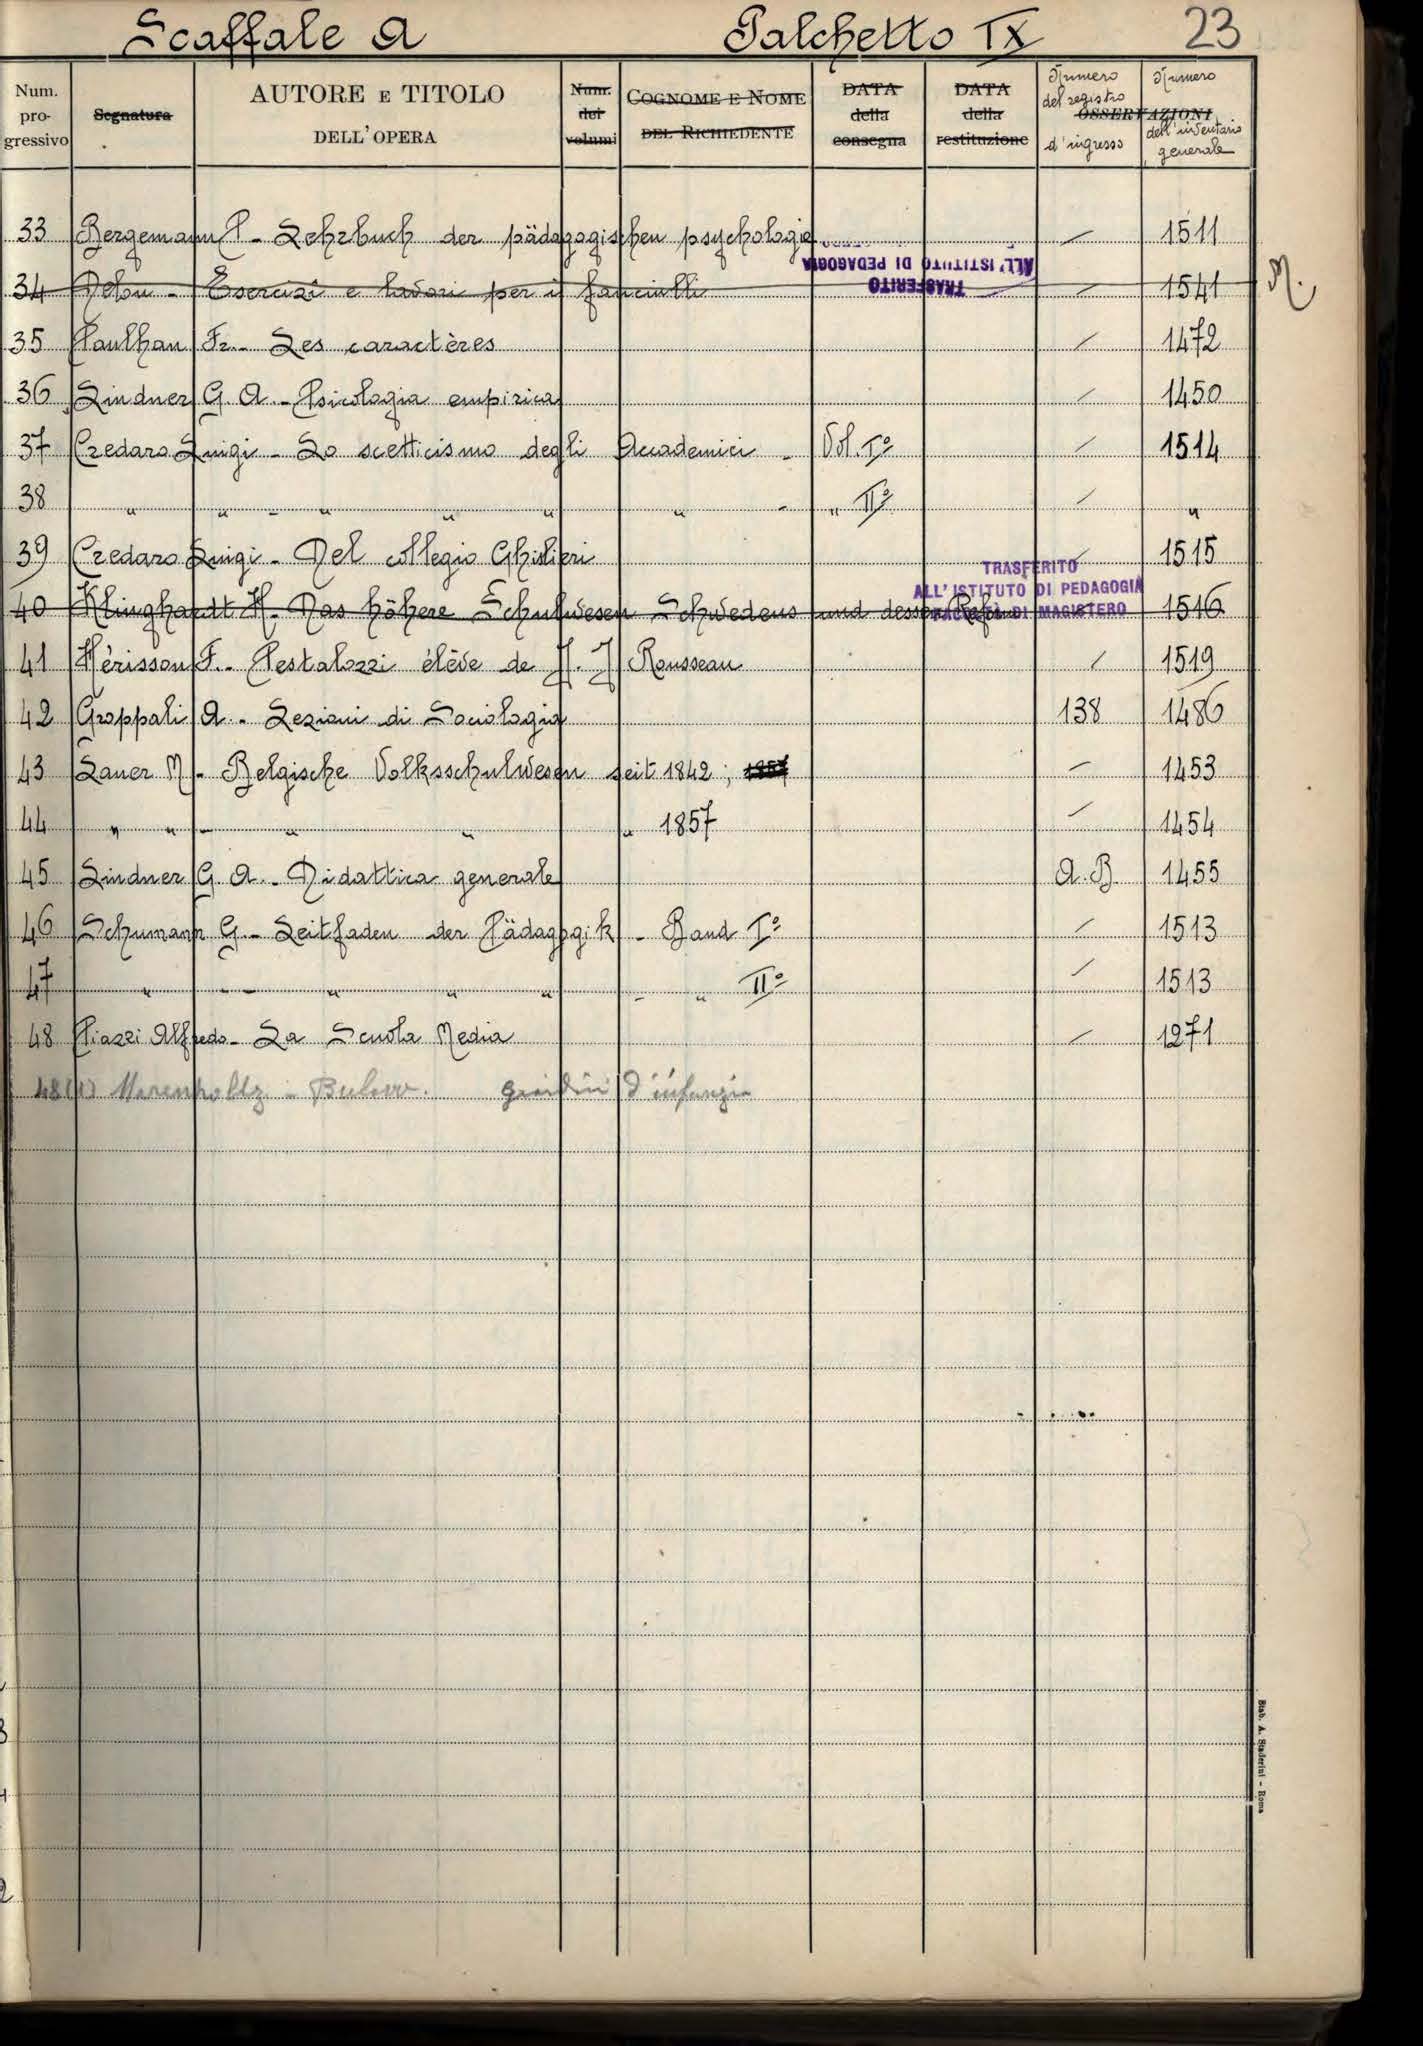 Scaffale A Palchetto IX 23
Num. progressivo Segnatura AUTORE E TITOLO DELL'OPERA Num. dei volumi COGNOME E NOME DEL RICHIEDENTE DATA della consegna DATA della restituzione OSSERVAZIONI Numero del registro d'ingresso Numero dell'inventario generale
33 Bergemann P. - Lehrbuch der pädagogischen psychologie / 1511
TRASFERITO ALL'ISTITUTO DI PEDAGOGIA
34 Delon - Esercizi e lavori per i fanciulli / 1541 M.
35 Paulhan Fr. - Les caractères / 1472
36 Lindner G. A. - Psicologia empirica / 1450
37 Credaro Luigi - Lo scetticismo degli Accademici - Vol. I° / 1514
38 " " - " " " " - " II° / "
39 Credaro Luigi - Del collegio Ghislieri / 1515
TRASFERITO ALL'ISTITUTO DI PEDAGOGIA FACOLTÀ DI MAGISTERO
40 Klinghardt H. - Das höhere Schulwesen Schwedens und dessen 1516
41 Hérisson F. - Pestalozzi élève de J. J. Rousseau / 1519
42 Groppali A. - Lezioni di Sociologia 138 1486
43 Lauer M - Belgische Volksschulwesen seit 1842; 1857 / 1453
44 " " - " " " 1857 / 1454
45 Lindner G. A. - Didattica generale A. B. 1455
46 Schumann G. - Leitfaden der Pädagogik - Band I° / 1513
47 " - - " " " - " II° / 1513
48 Piazzi Alfredo - La Scuola Media / 1271
48(1) Marenholtz - Bulow. giardini d'infanzia
Stab. A. Staderini - Roma